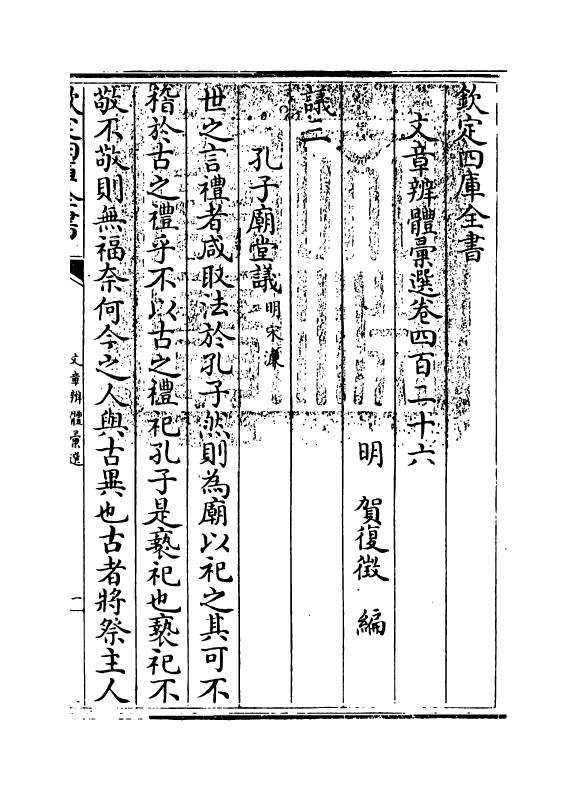 欽定四庫全書
文章辨體彙選卷四百二十六
明 賀復徵 編
議二
孔子廟堂議明宋濂
世之言禮者咸取法於孔子然則為廟以祀之其可不
稽於古之禮乎不以古之禮祀孔子是褻祀也褻祀不
敬不敬則無福奈何今之人與古異也古者將祭主人
欽定四庫全書
文章辨體彙選